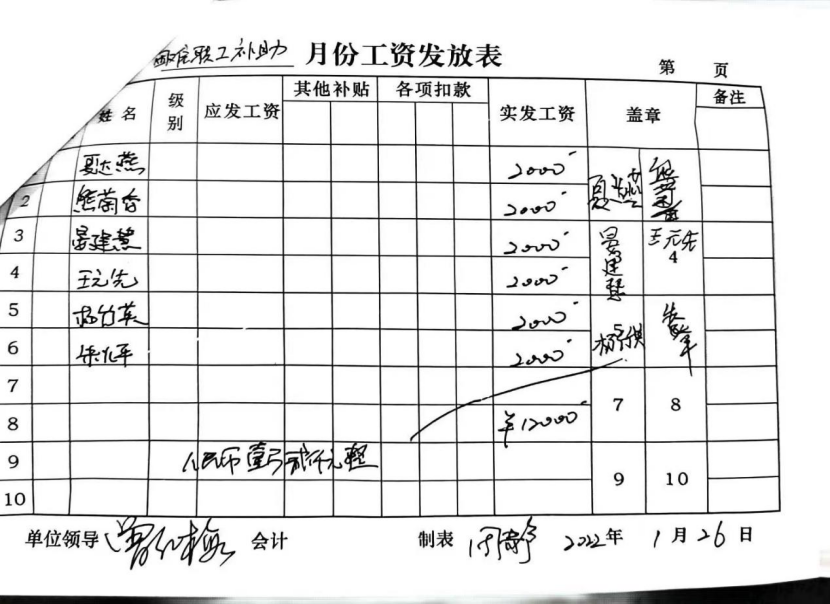 困难职工补助 月份工资发放表
第 页
姓名 级别 应发工资 其他补贴 各项扣款 实发工资 盖章 备注
夏达燕 2000
2 熊菊香 2000
3 晏建慧 2000
4 王元先 2000
5 杨台英 2000
6 朱兆平 2000
王元先
4
5
7 7 8
8 ¥12000
9 人民币壹万贰仟元整
10 9 10
单位领导 会计 制表 2022年 1月26日